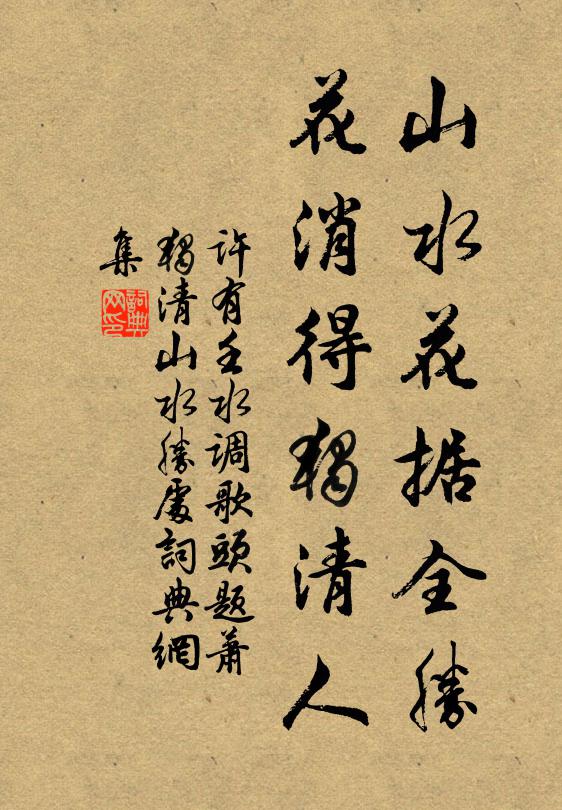 山水花据全勝
花消得獨清人
許有壬水調歌頭題蕭
獨清山水勝處詞典網
集
詞典網印